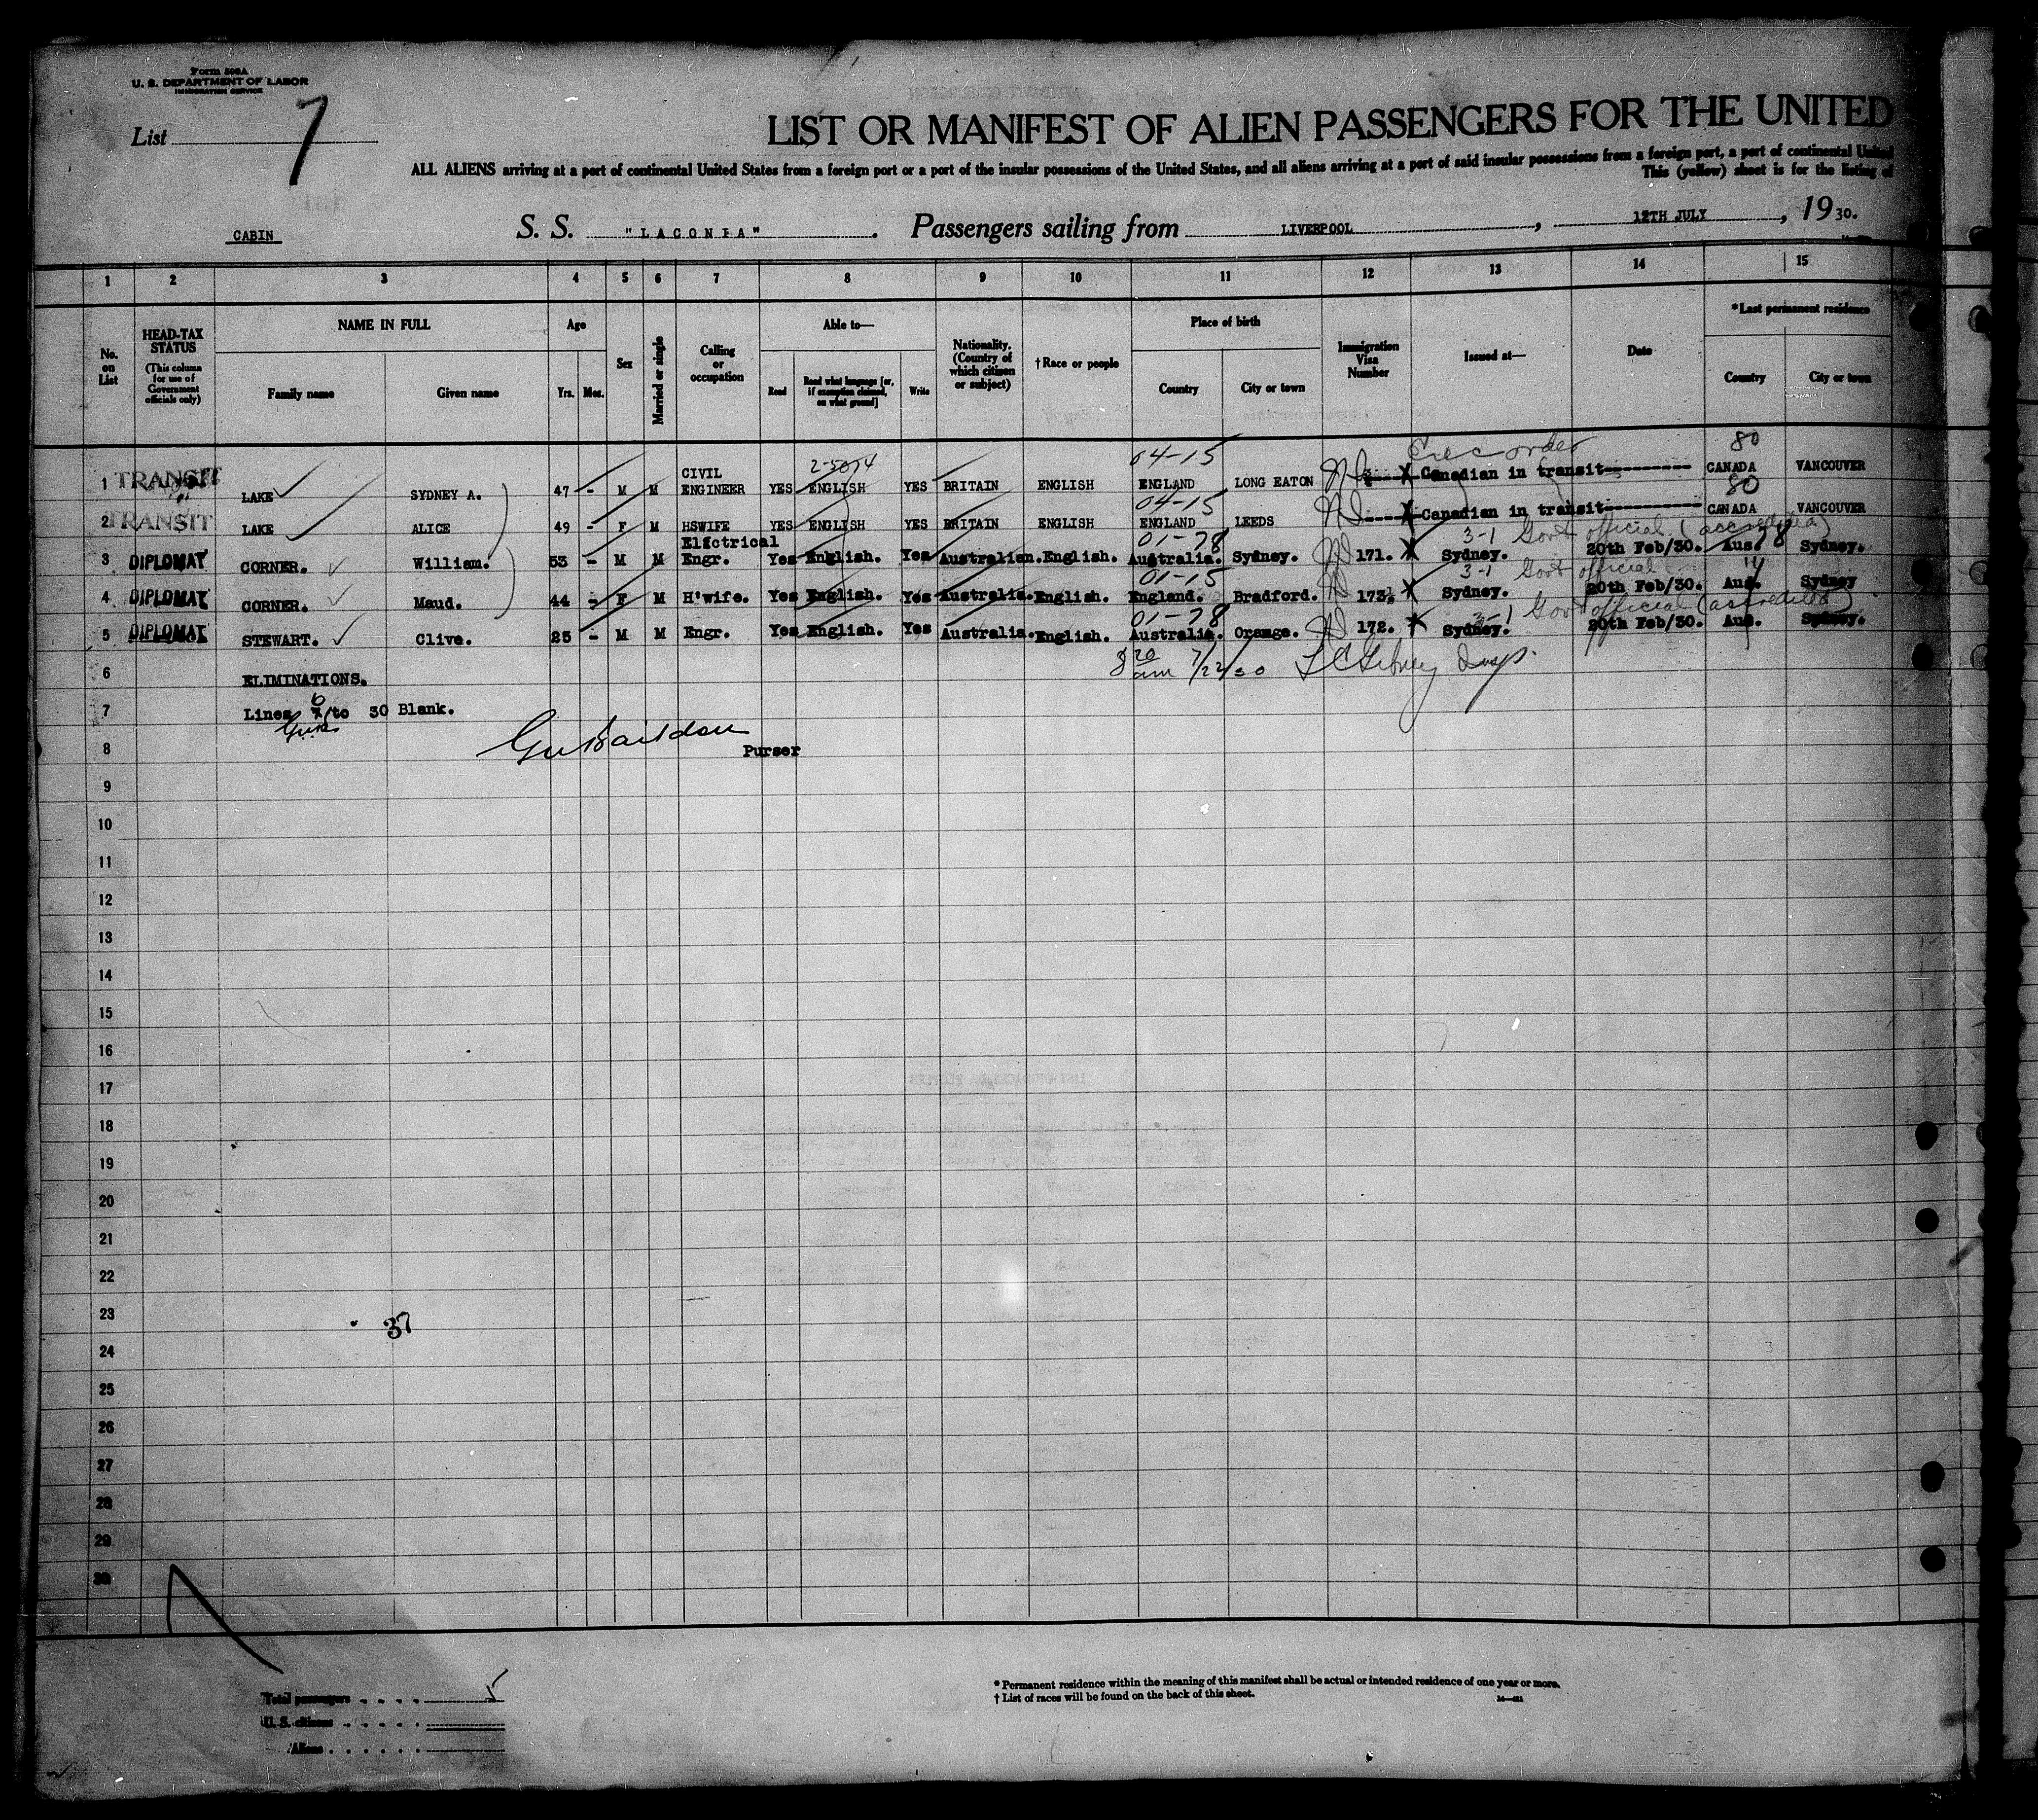 Form 500A
U. S. DEPARTMENT OF LABOR
IMMIGRATION SERVICE
List 7
LIST OR MANIFEST OF ALIEN PASSENGERS FOR THE UNITED
ALL ALIENS arriving at a port of continental United States from a foreign port or a port of the insular possessions of the United States, and all aliens arriving at a port of said insular possessions from a foreign port, a port of continental United
This (yellow) sheet is for the listing of
CABIN S. S. "LACONIA". Passengers sailing from LIVERPOOL, 12TH JULY, 1930.
1 2 3 4 5 6 7 8 9 10 11 12 13 14 15
No. on List
HEAD-TAX STATUS
(This column for use of Government officials only)
NAME IN FULL
Family name
Given name
Age
Yrs. Mos.
Sex
Married or single
Calling or occupation
Able to—
Read
Read what language [or, if exemption claimed, on what ground]
Write
Nationality. (Country of which citizen or subject)
† Race or people
Place of birth
Country
City or town
Immigration Visa Number
Issued at—
Date
*Last permanent residence
Country
City or town
04-15 80
1 TRANSIT LAKE SYDNEY A. 47 - M M CIVIL ENGINEER YES ENGLISH YES BRITAIN ENGLISH ENGLAND LONG EATON Canadian in transit---------- CANADA VANCOUVER
04-15 80
2 TRANSIT LAKE ALICE 49 - F M HSWIFE YES ENGLISH YES BRITAIN ENGLISH ENGLAND LEEDS Canadian in transit---------- CANADA VANCOUVER
01-78 3-1 Govt official (accredited) 78
3 DIPLOMAT CORNER. William. 53 - M M Elfctrical Engr. Yes English. Yes Australian. English. Australia. Sydney. 171. Sydney. 20th Feb/30. Aus. Sydney.
01-15 3-1 Govt official
4 DIPLOMAT CORNER. Maud. 44 - F M H'wife. Yes English. Yes Australia. English. England. Bradford. 173. Sydney. 20th Feb/30. Aus. Sydney
01-78 3-1 Govt official (accredited)
5 DIPLOMAT STEWART. Clive. 25 - M M Engr. Yes English. Yes Australia. English. Australia. Orange. 172. Sydney. 20th Feb/30. Aus. Sydney.
6 ELIMINATIONS. 8 20 am 7/22/30
7 Lines 6 to 30 Blank.
8 Purser
9
10
11
12
13
14
15
16
17
18
19
20
21
22
23 37
24
25
26
27
28
29
30
Total passengers . . . . 5
U. S. citizens . . . . .
Aliens . . . . . .
* Permanent residence within the meaning of this manifest shall be actual or intended residence of one year or more.
† List of races will be found on the back of this sheet.